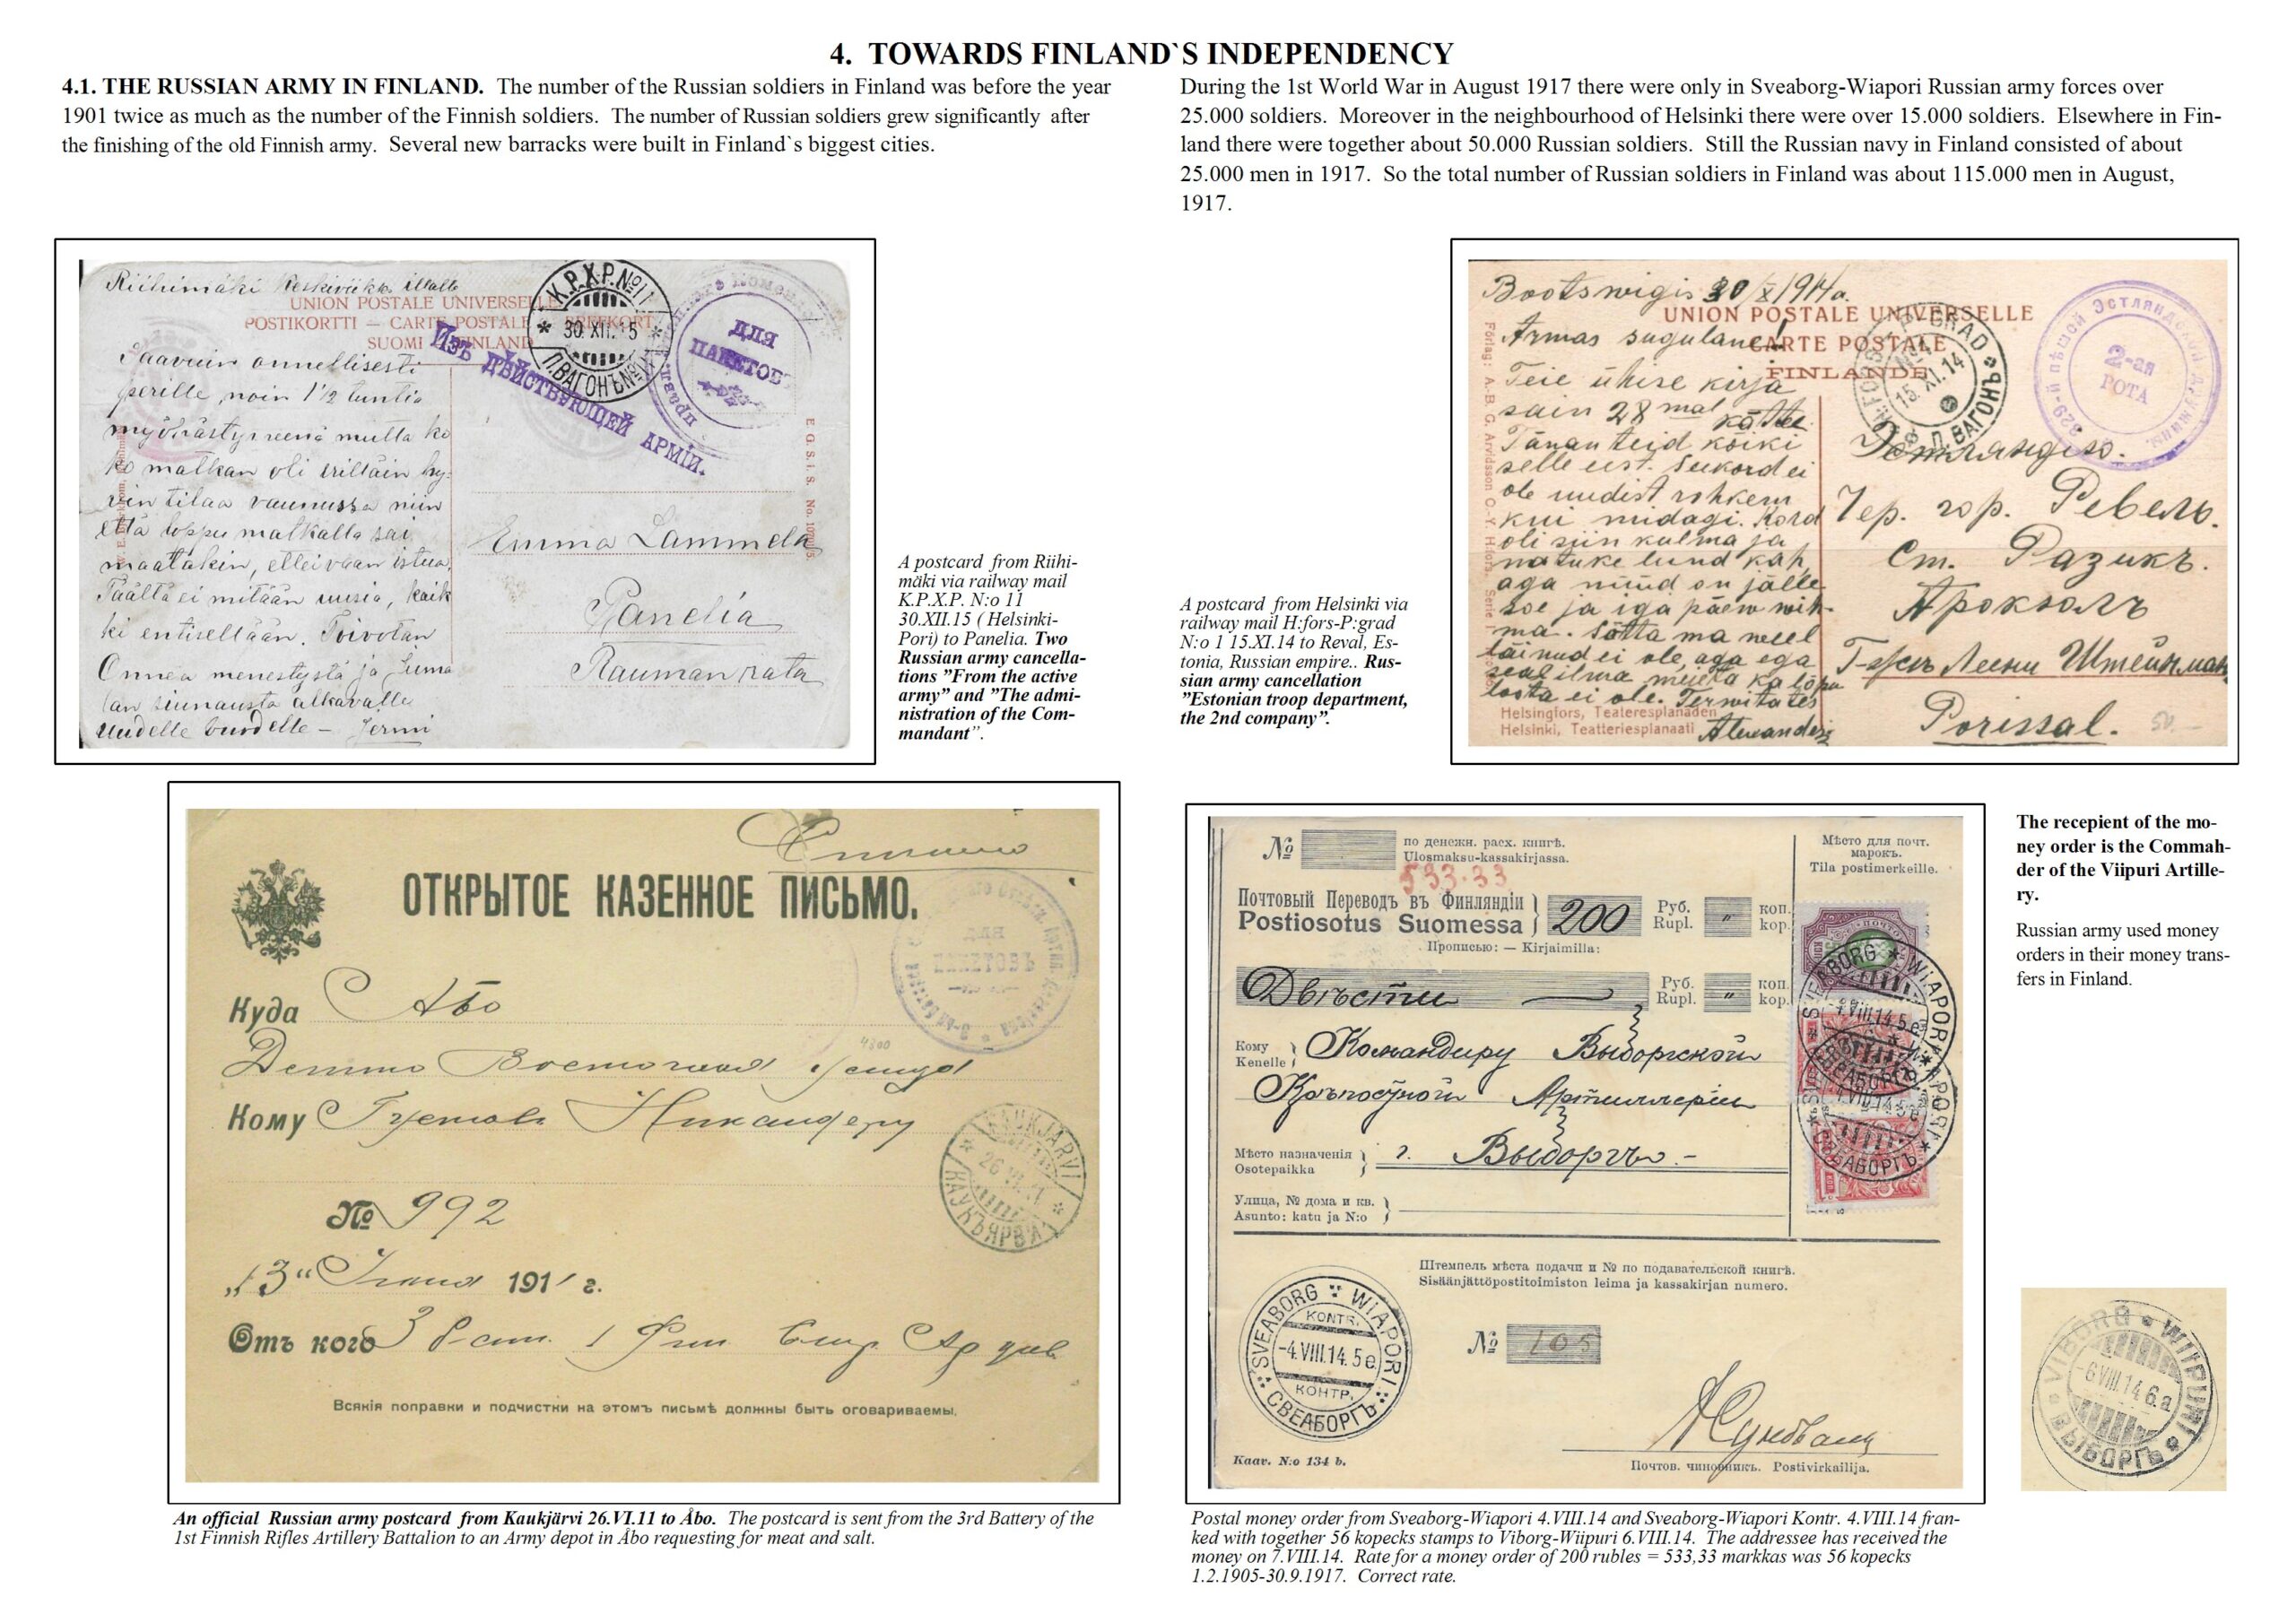 4. TOWARDS FINLAND`S INDEPENDENCY
4.1. THE RUSSIAN ARMY IN FINLAND. The number of the Russian soldiers in Finland was before the year
1901 twice as much as the number of the Finnish soldiers. The number of Russian soldiers grew significantly after
the finishing of the old Finnish army. Several new barracks were built in Finland`s biggest cities.
During the 1st World War in August 1917 there were only in Sveaborg-Wiapori Russian army forces over
25.000 soldiers. Moreover in the neighbourhood of Helsinki there were over 15.000 soldiers. Elsewhere in Fin-
land there were together about 50.000 Russian soldiers. Still the Russian navy in Finland consisted of about
25.000 men in 1917. So the total number of Russian soldiers in Finland was about 115.000 men in August,
1917.
Riihimäki Keskiviikko illalla
UNION POSTALE UNIVERSELLE
POSTIKORTTI — CARTE POSTALE — BREFKORT
SUOMI FINLAND
К.Р.Х.Р. №11
30.XII.15
П.ВАГОНЪ №11
Изъ ДѢЙСТВУЮЩЕЙ АРМІИ.
ДЛЯ
ПАКЕТОВЪ
Saavuin onnellisesti
perille, noin 1½ tuntia
myöhästyneenä mutta ko
ko matkan oli erittäin hy-
vin tilaa vaunussa niin
että loppu matkalla sai
maatakin, ellei vaan istua.
Täältä ei mitään uusia, kaik
ki entisellään. Toivotan
Onnea menestystä ja Juma
lan siunausta alkavalle
uudelle vuodelle – Jermi
E. G. S. i. S. No.
Emma Lammela
Panelia
Raumanrata
A postcard from Riihi-
mäki via railway mail
K.P.X.P. N:o 11
30.XII.15 ( Helsinki-
Pori) to Panelia. Two
Russian army cancella-
tions ”From the active
army” and ”The admi-
nistration of the Com-
mandant”.
A postcard from Helsinki via
railway mail H:fors-P:grad
N:o 1 15.XI.14 to Reval, Es-
tonia, Russian empire.. Rus-
sian army cancellation
”Estonian troop department,
the 2nd company”.
Bootswigis 30/X 1914 a.
UNION POSTALE UNIVERSELLE
CARTE POSTALE
FINLANDE
15.XI.14
П.ВАГОНЪ
229-й пѣшой Эстляндской дружины.
2-ая
РОТА
Armas sugulane!
Teie ühise kirja
sain 28 mal kätte.
Tänan teid kõiki
selle eest. Seekord ei
ole uudist rohkem
kui midagi. Kord
oli siin külma ja
natuke lund kah,
aga nüüd on jälle
soe ja iga päew wih-
ma. Sõtta ma weel
läinud ei ole, aga ega
seal ilma meieta ka lõpu
loota ei ole. Terwitates
Alexander
Förlag: A.-B. G. Arvidsson O.-Y. H:fors. Serie I
Helsingfors, Teateresplanaden
Helsinki, Teatteriesplanaati
Эстляндію.
Чер. гор. Ревель.
Ст. Разикъ.
Арокюль
Г-жѣ Леени Штейнман
Porissal.
50.-
ОТКРЫТОЕ КАЗЕННОЕ ПИСЬМО.
ДЛЯ
ПАКЕТОВЪ
Куда Або
4800
Кому Густавъ Никандеру
KAUKJÄRVI
26.VI.11
КАУКЪЯРВИ
№ 992
„13“ Іюня 1911 г.
Отъ кого 3 б-ат. 1 Фин. Стр. Ар див
Всякія поправки и подчистки на этомъ письмѣ должны быть оговариваемы.
An official Russian army postcard from Kaukjärvi 26.VI.11 to Åbo. The postcard is sent from the 3rd Battery of the
1st Finnish Rifles Artillery Battalion to an Army depot in Åbo requesting for meat and salt.
№ по денежн. расх. книгѣ.
Ulosmaksu-kassakirjassa.
533.33
Мѣсто для почт.
марокъ.
Tila postimerkeille.
Почтовый Переводъ въ Финляндіи
Postiosotus Suomessa } 200 Руб. Rupl. " коп. kop.
Прописью: — Kirjaimilla:
Двѣсти — Руб. Rupl. " коп. kop.
Кому Kenelle } Командиру Выборгской
Крѣпостной Артиллеріи
Мѣсто назначенія
Osotepaikka } г. Выборгъ.-
Улица, № дома и кв.
Asunto: katu ja N:o }
SVEABORG WIAPORI
-4.VIII.14.5e.
СВЕАБОРГЪ
Штемпель мѣста подачи и № по подавательской книгѣ.
Sisäänjättöpostitoimiston leima ja kassakirjan numero.
SVEABORG WIAPORI
KONTR.
-4.VIII.14.5e.
КОНТР.
СВЕАБОРГЪ
№ 105
Kaav. N:o 134 b.
Почтов. чиновникъ. Postivirkailija.
The recepient of the mo-
ney order is the Commah-
der of the Viipuri Artille-
ry.
Russian army used money
orders in their money trans-
fers in Finland.
VIBORG WIIPURI
-6.VIII.14.6.a
ВЫБОРГЪ
Postal money order from Sveaborg-Wiapori 4.VIII.14 and Sveaborg-Wiapori Kontr. 4.VIII.14 fran-
ked with together 56 kopecks stamps to Viborg-Wiipuri 6.VIII.14. The addressee has received the
money on 7.VIII.14. Rate for a money order of 200 rubles = 533,33 markkas was 56 kopecks
1.2.1905-30.9.1917. Correct rate.